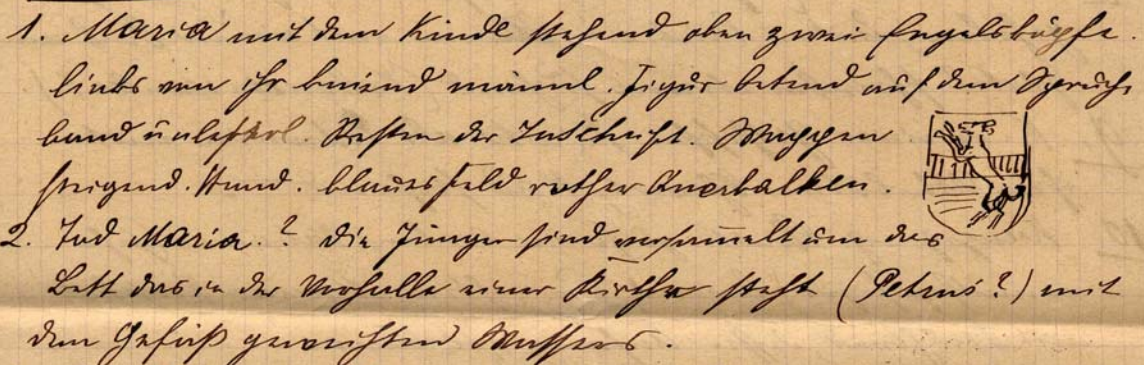 1. Maria mit dem Kinde stehend oben zwei Engelsköpfe.
links von ihr knieend männl. Figur betend auf dem Spruch-
band unlesbare Resten der Inschrift. Wappen
steigend. Hund. blaues Feld rother Querbalken.
2. Tod Maria. ? die Jünger sind versammelt um das
Bett das in der Vorhalle einer Kirche steht (Petrus?) mit
dem Gefäß geweihten Wassers.